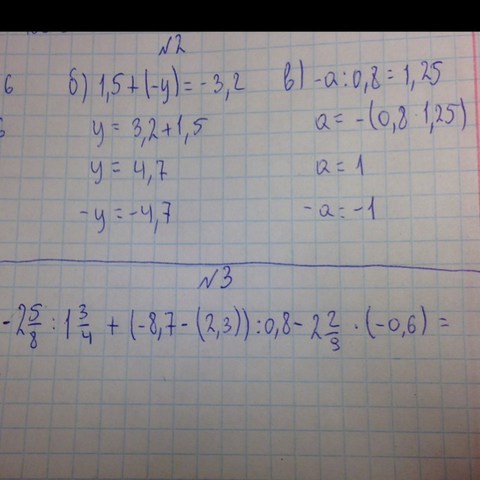 №2
б) 1,5+(-y)=-3,2
y = 3,2+1,5
y = 4,7
-y = -4,7
в) -a:0,8=1,25
a = -(0,8·1,25)
a = 1
-a = -1
№3
-2 5/8 : 1 3/4 + (-8,7-(2,3)):0,8-2 2/3 · (-0,6) =